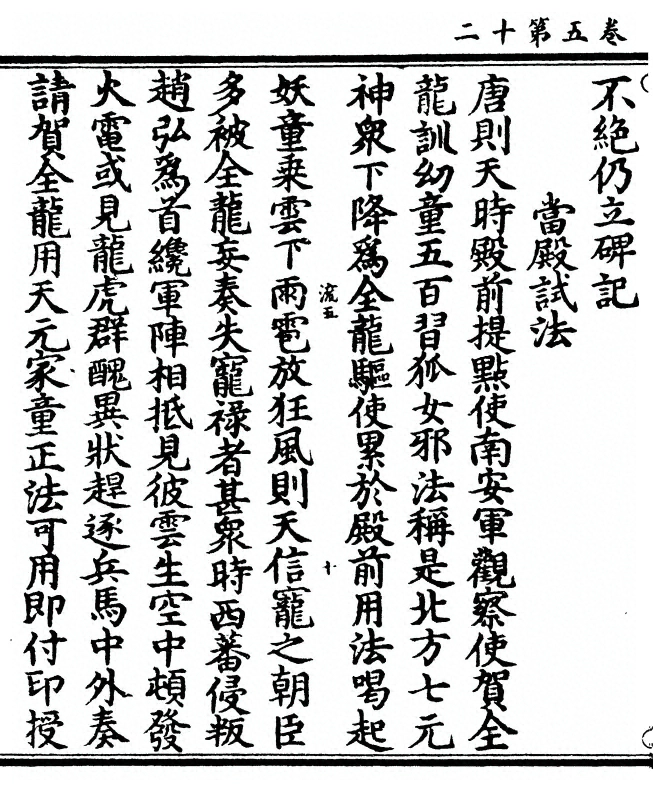 卷五第十二
不絶仍立碑記
當殿試法
唐則天時殿前提點使南安軍觀察使賀全
龍訓幼童五百習狐女邪法稱是北方七元
神衆下降爲全龍驅使累於殿前用法喝起
流五
十
妖童乗雲下雨雹放狂風則天信寵之朝臣
多被全龍妄奏失寵禄者甚衆時西蕃侵叛
趙弘爲首纔軍陣相抵見彼雲生空中頓發
火電或見龍虎群醜異狀趕逐兵馬中外奏
請賀全龍用天元家童正法可用即付印授